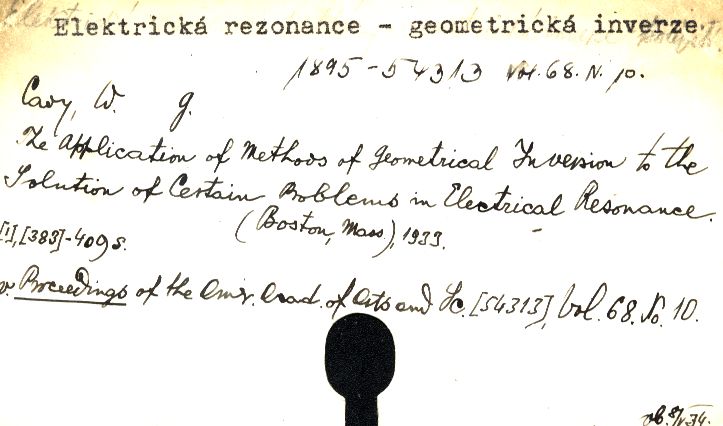 Elektrická rezonance - geometrická inverze.
1895-54313 Vol. 68. N. 10.
Cady, W. G.
The Application of Methods of Geometrical Inversion to the
Solution of Certain Problems in Electrical Resonance.
(Boston, Mass), 1933.
[1], [383]-409 s.
v. Proceedings of the Amer. Acad. of Arts and Sc. [54313], Vol. 68. No. 10.
ob. 8/V 34.